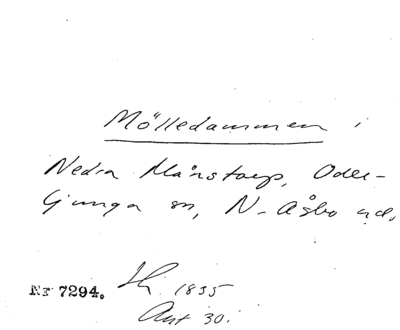 Mölledammen i
Nedra Månstorp, Oder-
ljunga sn, N. Åsbo hd.
NF 7294.
1835
Ant 30.